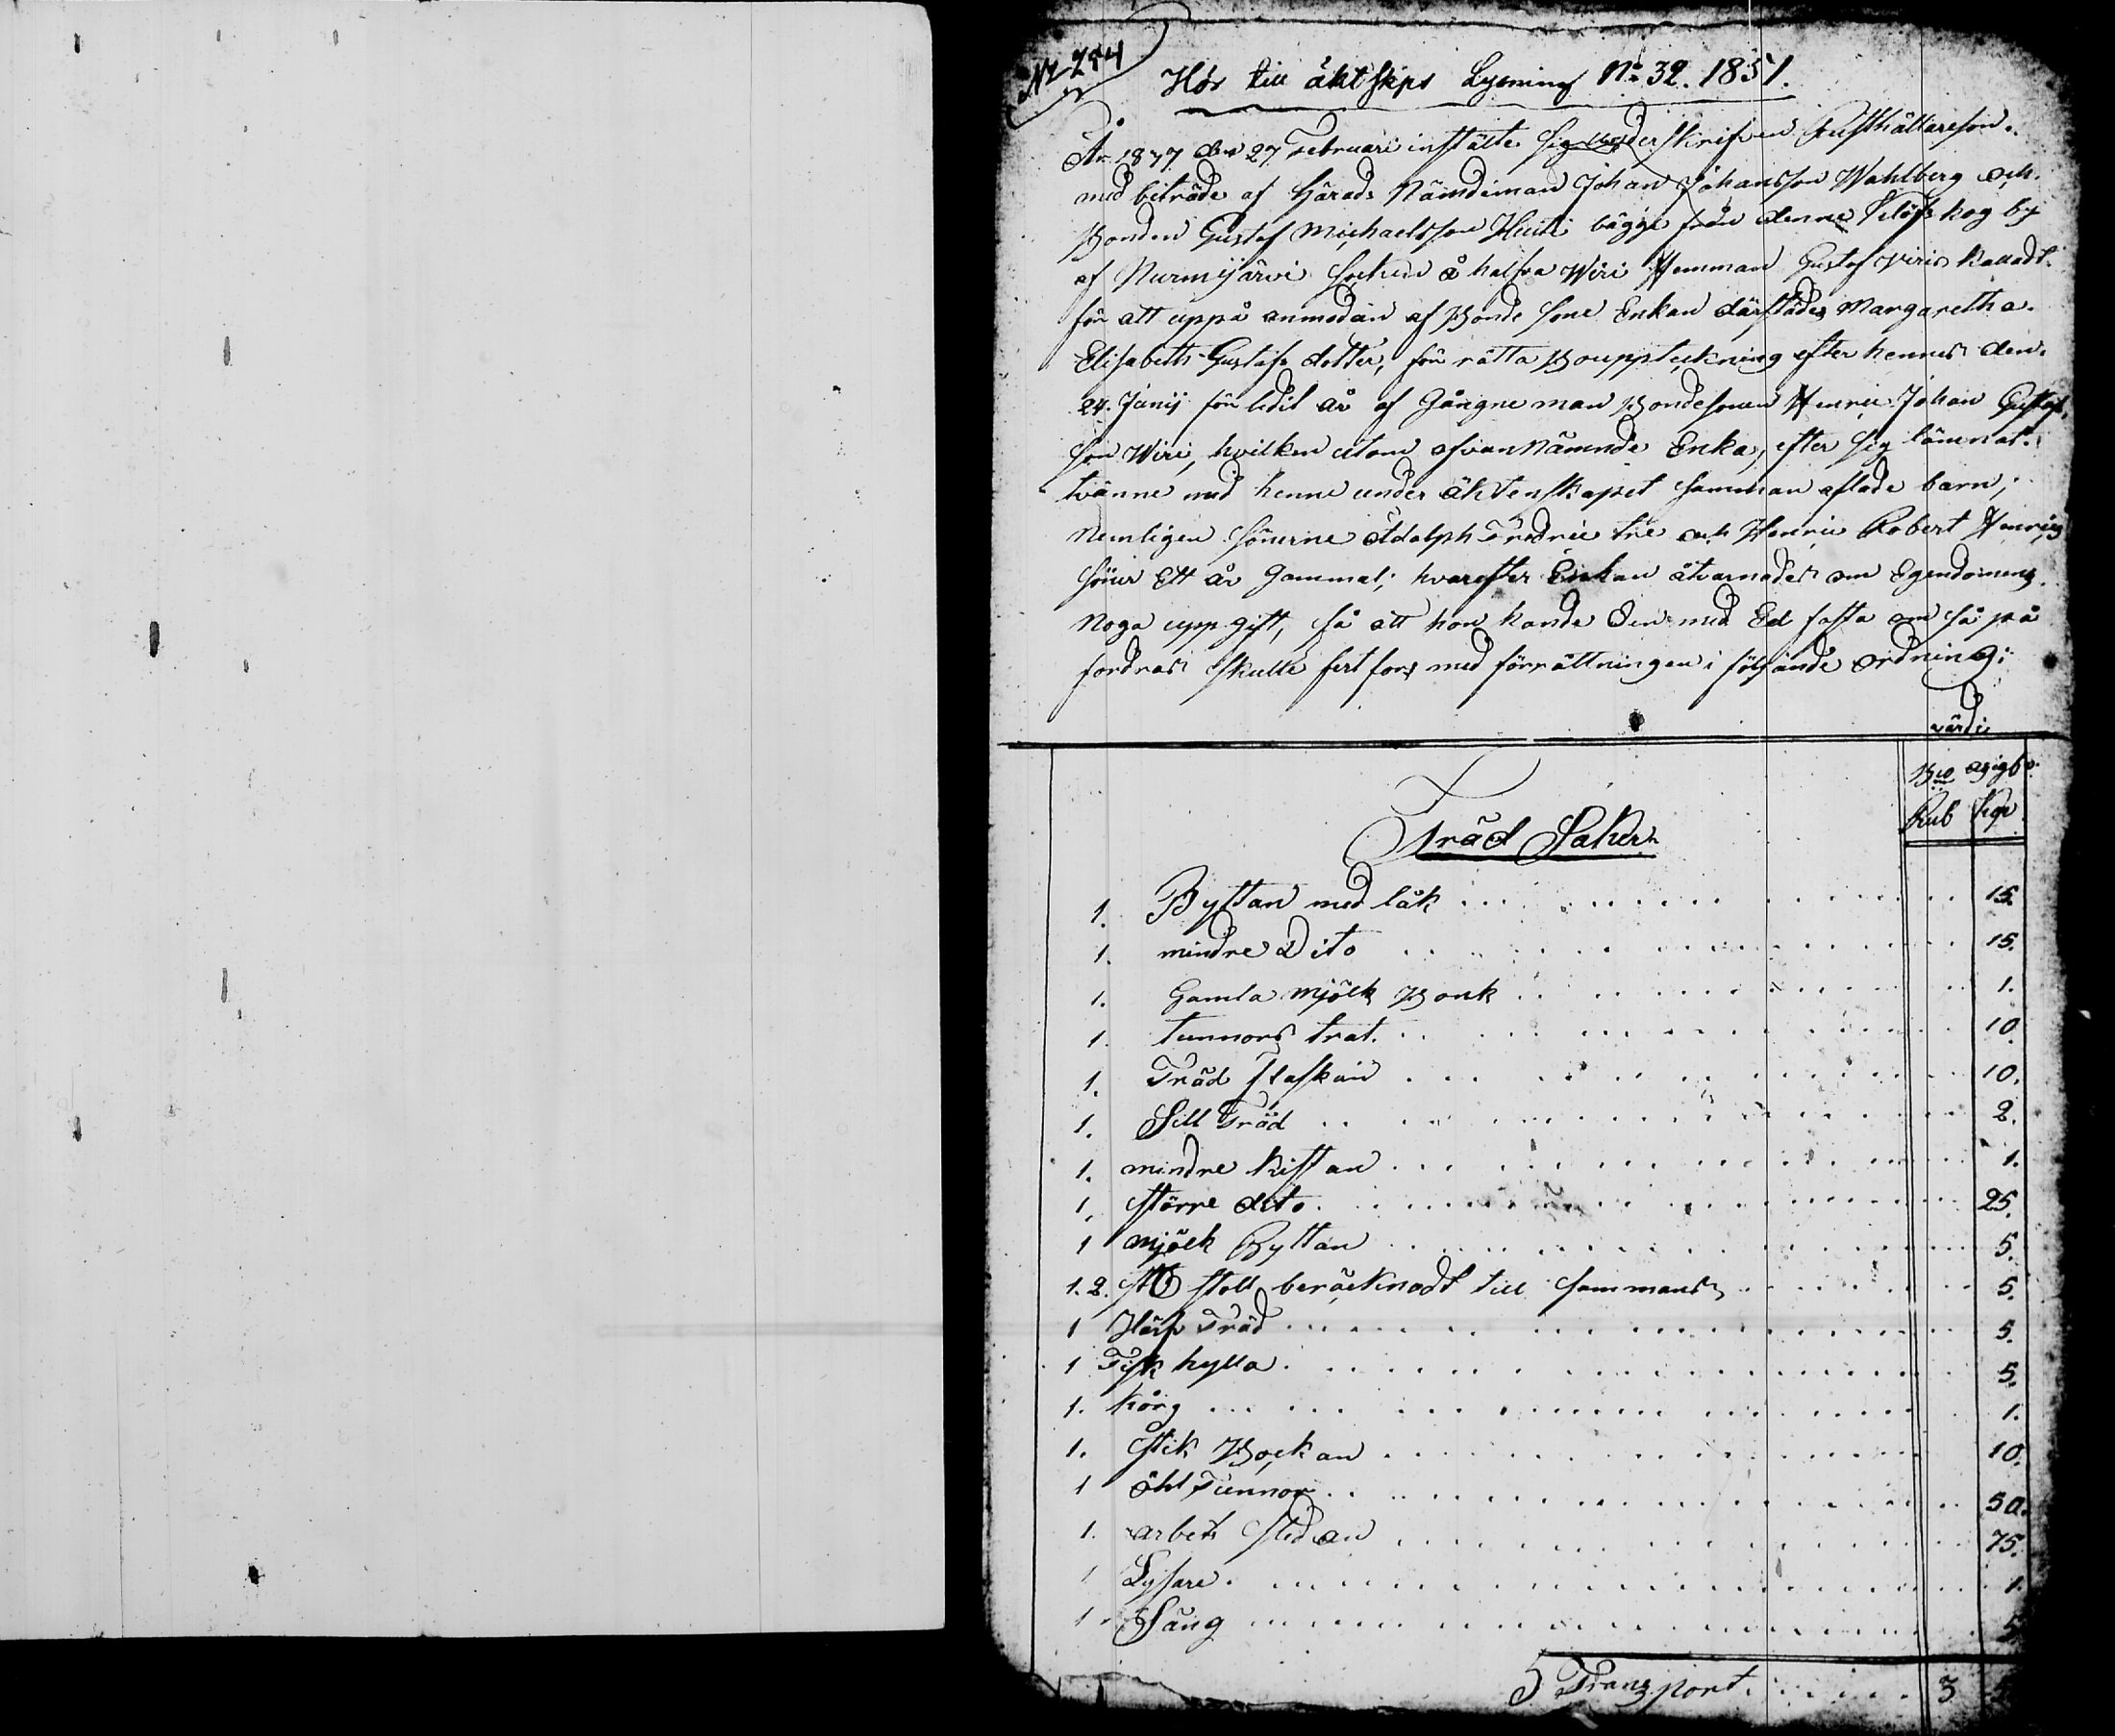 Nr 294
Hör till äktskps Lysning No 32. 1851.
År 1877 den 27 Februari instälte Sig underskrifven Rusthållareson.
med biträde af Härads Nämndeman Johan Johansson Wahlberg och
Bonden Gustaf Michaelsson Huiti bägge från denne by
af Nurmijärvi Socken å halfva Wiri Hemman Gustaf Wiris kalladt.
för att uppå anmodan af Bonde Sone Enkan därstädes Margaretha.
Elisabeth Gustafs dotter, för rätta Bouppteckning efter hennes den.
24. Junij förledit år af Gångne man Bondesonen Henric Johan Gustafs.
son Wiri, hvilken utom ofvan Nämnde Enka, efter Sig lämnat.
tvänne med henne under äktenskapet Samman aflade barn;
Nemligen Sönerne Adolph Fredric tre och Henric Robert Henrics
Söner Ett år Gammal; hvarefter Enkan åtvarnades om Egendomens
Noga uppgift, så att hon kande den med Ed fästa om så på
fordras skulle fortfors med förrättningen i följande ordning:
värde
Rub Kop
Träd Saker
1. Byttan med låk . . . 15.
1. mindre Dito . . . 15.
1. Gamla mjölk Bonk . . . 1.
1. tunnors trat. . . . 10.
1. Träd flaskan . . . 10.
1. Sill Träd . . . 2.
1. mindre kistan . . . 1.
1. större dito . . . 25.
1 mjölk Byttan . . . 5.
1. 2. St stoll beräcknadt till sammans . . . 5.
1 Träd . . . 5.
1 Fisk hylla . . . 5.
1. körg . . . 1.
1. Stik Bockan . . . 10.
1 öhl Tunnor . . . 50.
1. arbets Slädan . . . 75.
1 Lysare . . . 1.
1. Säng . . . 5
Transport . . . 3